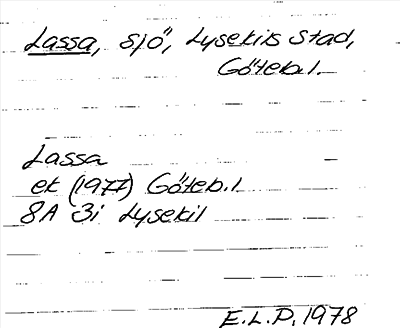 Lassa, sjö, Lysekils stad,
Göteb.l.
Lassa
ek (1977) Göteb.l
8A 3i Lysekil
E.L.P. 1978